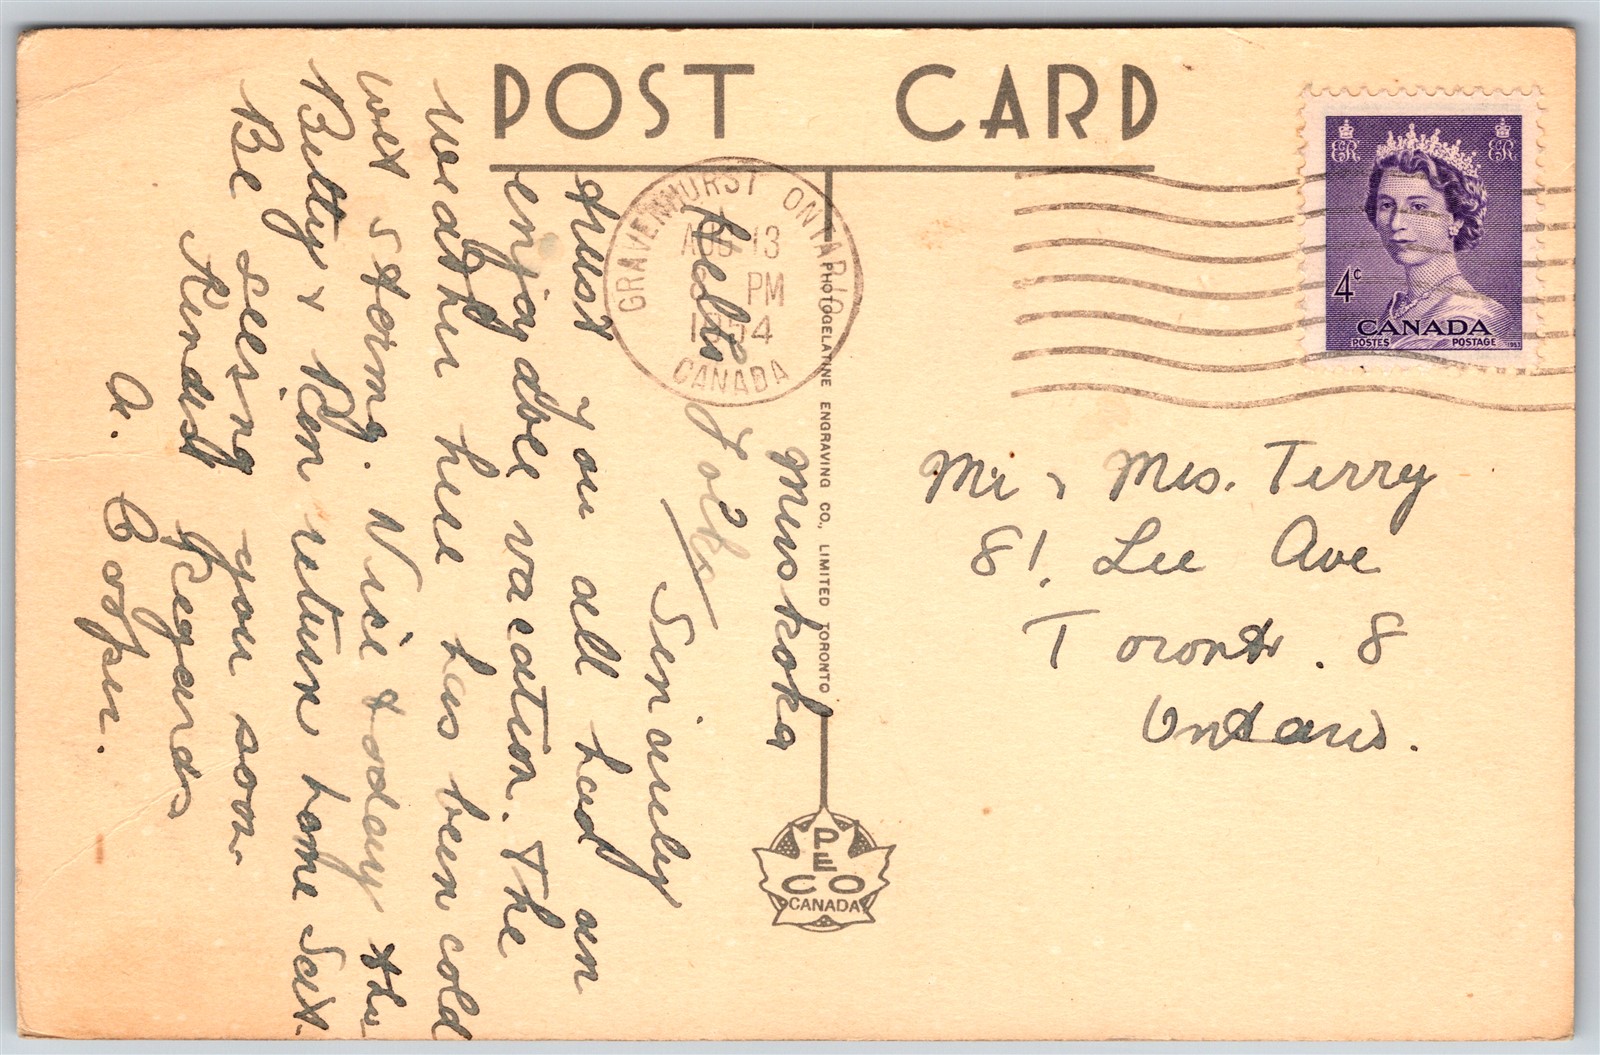 POST CARD
GRAVENHURST ONTARIO
AUG 13
PM
1954
CANADA
ER ER
4c
CANADA
POSTES POSTAGE
1953
Mr & Mrs. Terry
81. Lee Ave
Toronto. 8
Ontario.
PHOTOGELATINE ENGRAVING CO., LIMITED TORONTO
PECO
CANADA
Muskoka
Hello Folks
Sincerely
trust you all had an
enjoyable vacation. The
weather here has been cold
wet stormy. Nice today tho
Betty & Ken return home Sat.
Be seeing you soon
Kindest Regards
A. Cooper.